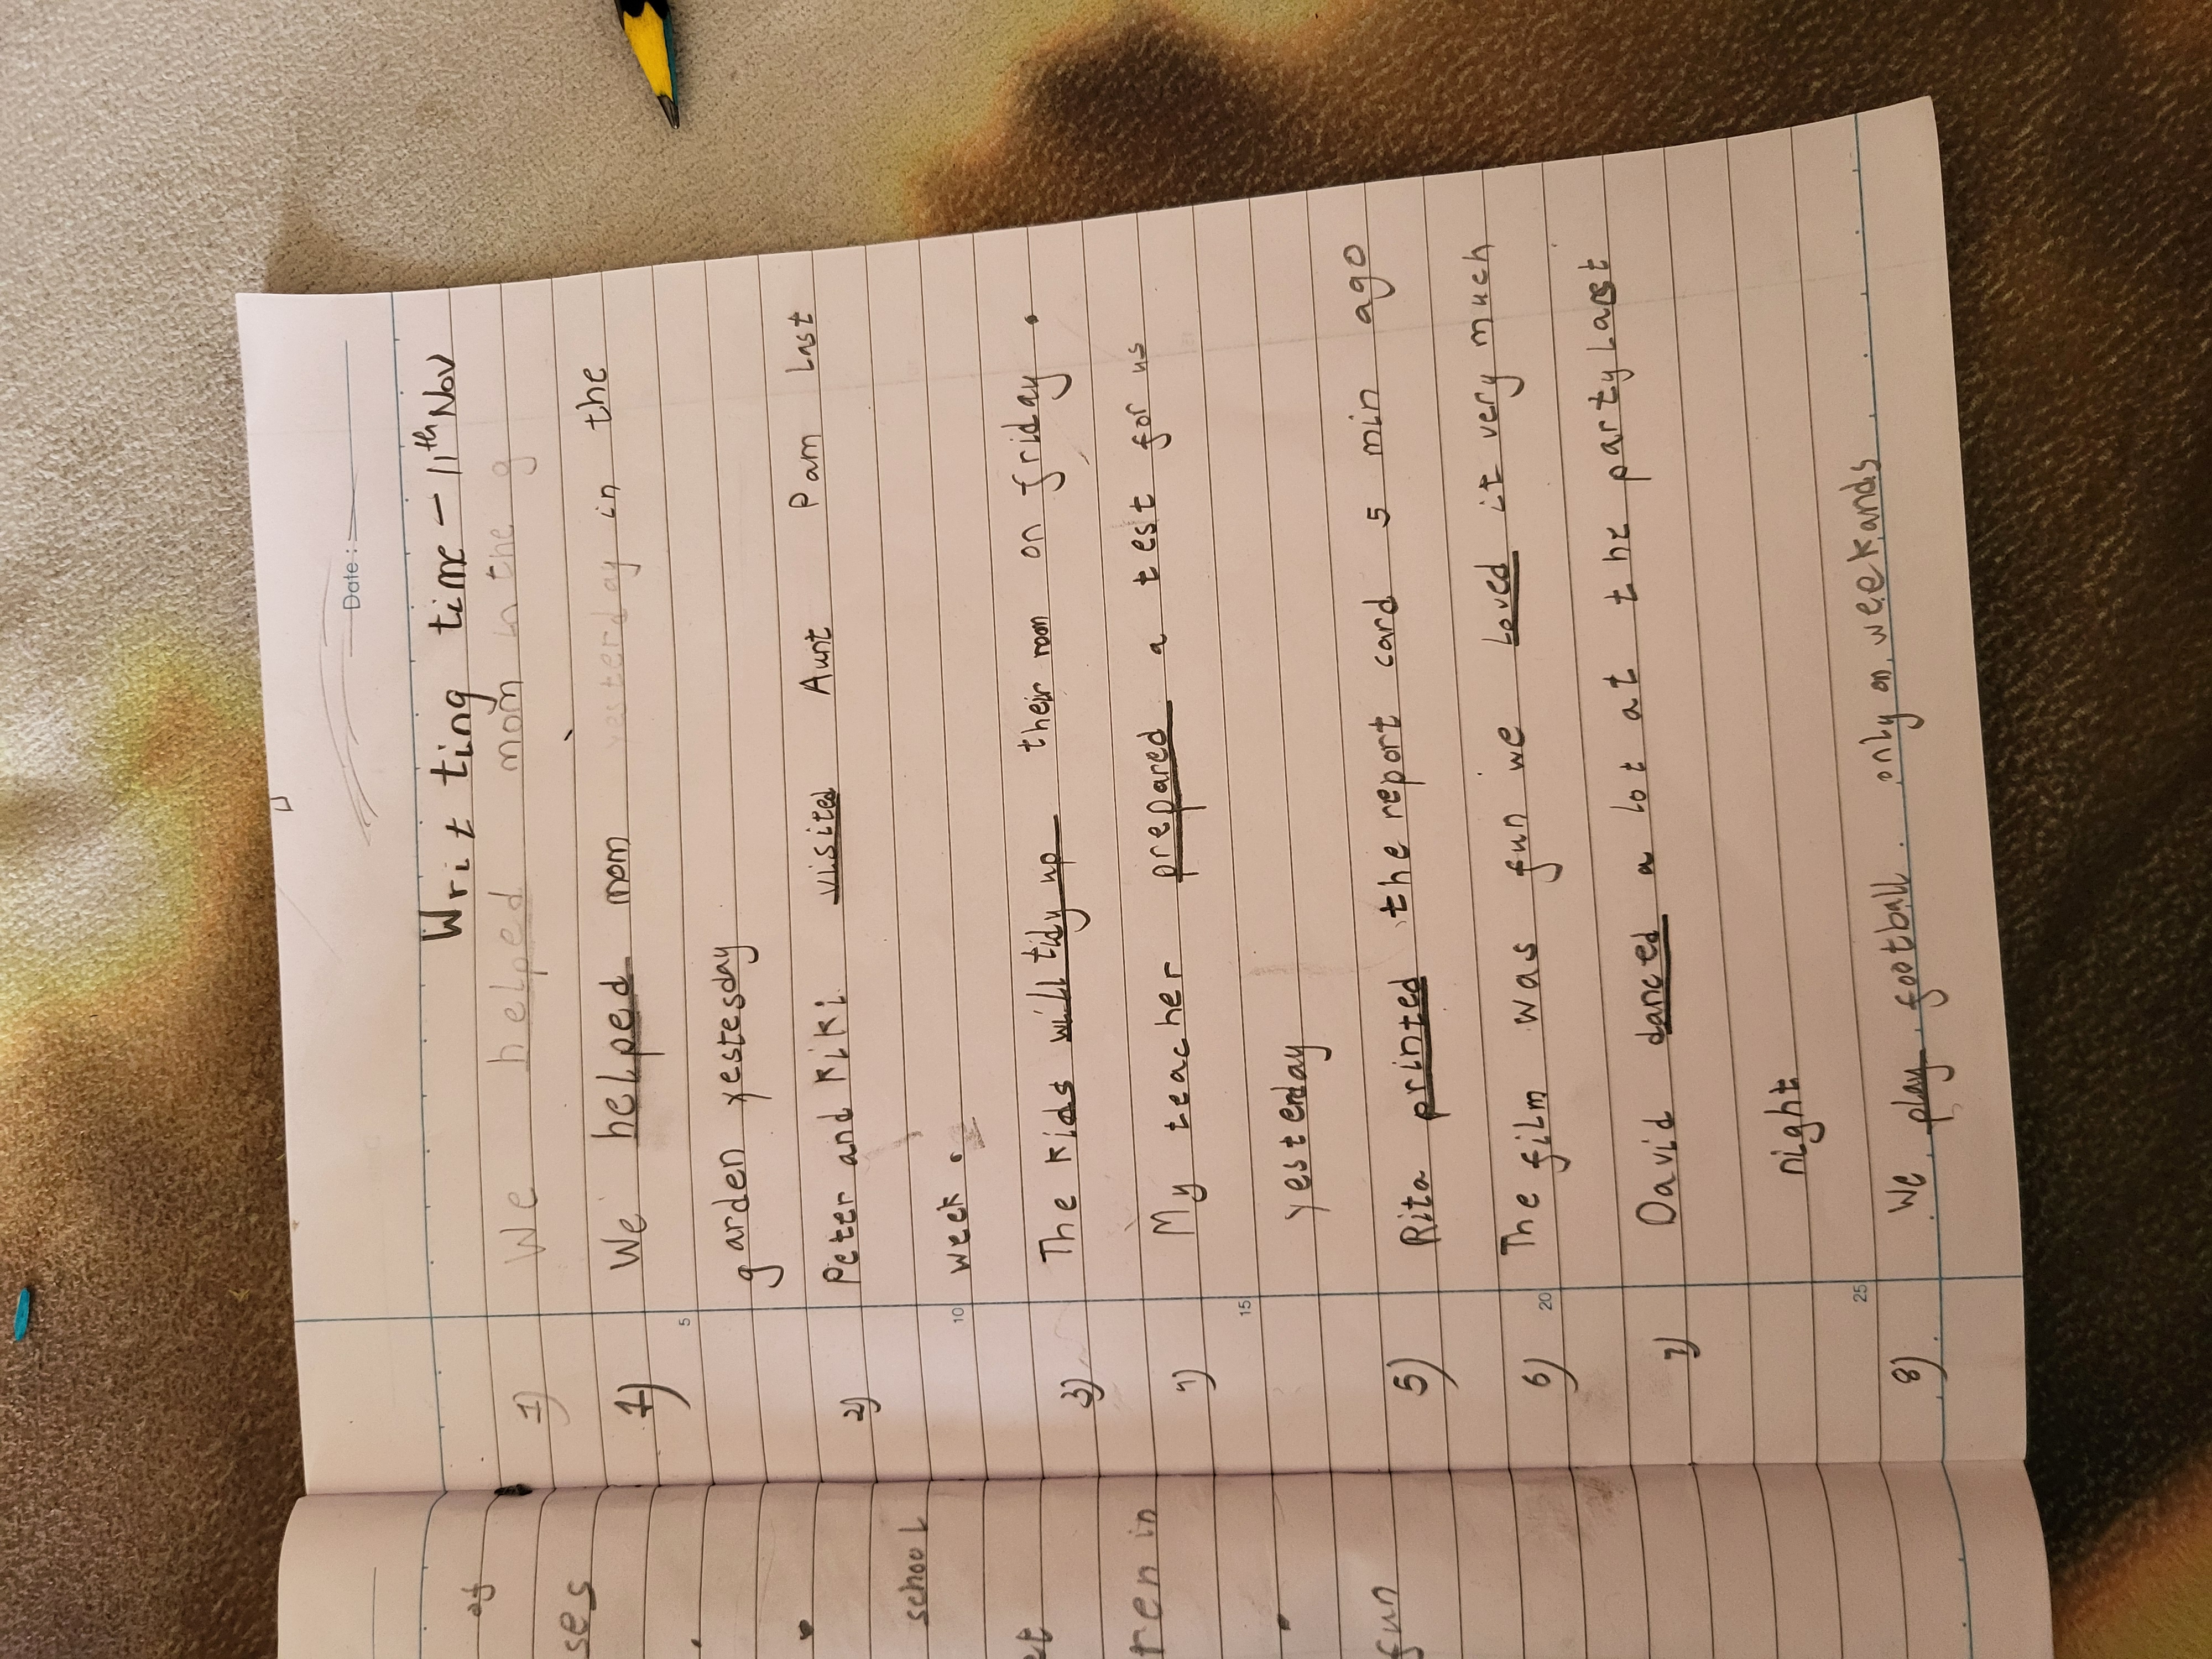 Date:
Writting time - 11th Nov
1) We helped mom in the g
1) We helped mom yesterday in the
5
garden yestesday
2) Peter and Kiki visited Aunt Pam Last
week.
10
3) The Kids will tidy up their room on friday.
4) My teacher prepared a test for us
yesterday
15
5) Rita printed the report card 5 min ago
6) The film was fun we Loved it very much
20
7) David danced a lot at the party Last
night
8) We play football only on weekands
25
of
ses
school
et
ren in
fun